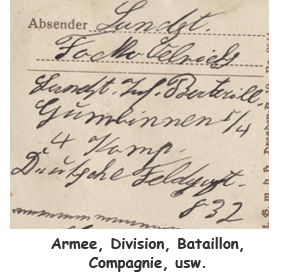 Absender Landst.
Focko Ulrichs
Landst. Inf. Bataill.
Gumbinnen 5/4
4 Komp.
Deutsche Feldpost.
832
Armee, Division, Bataillon,
Compagnie, usw.